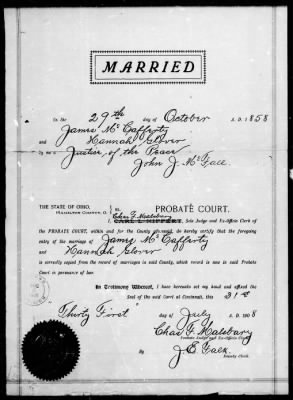 MARRIED
On the 29th day of October A. D. 1858
James Mc Cafferty
and Hannah Glover
by me a Justice of the Peace
John J. McFall.
THE STATE OF OHIO,
HAMILTON COUNTY, O. } ss. PROBATE COURT.
Chas F. Malsbary
I, CARL L. NIPPERT, Sole Judge and Ex-Officio Clerk of
the PROBATE COURT, within and for the County aforesaid, do hereby certify that the foregoing
entry of the marriage of James Mc Cafferty
and Hannah Glover
is correctly copied from the record of marriages in said County, which record is now in said Probate
Court in pursuance of law.
In Testimony Whereof, I have hereunto set my hand and affixed the
Seal of the said Court at Cincinnati, this 31st
Thirty First day of July A. D. 1908
Chas F. Malsbary
Probate Judge and Ex-Officio Clerk.
By J. E. Falk
Deputy Clerk.